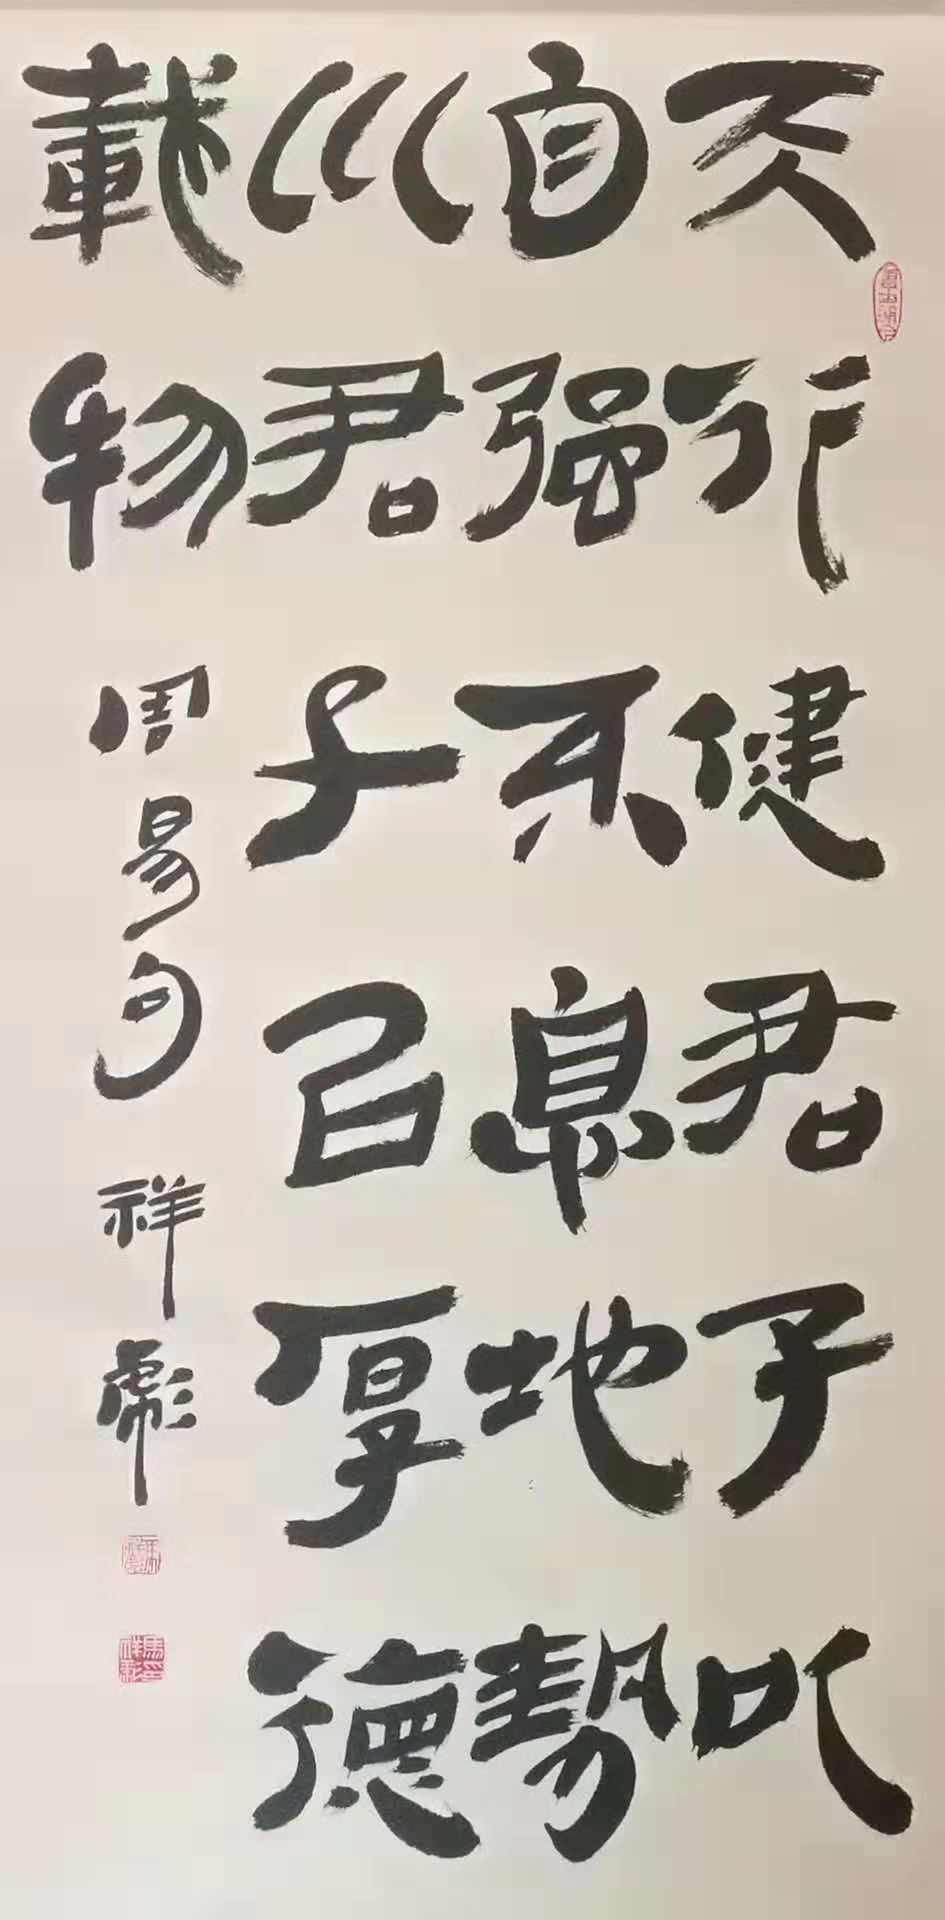 天行健君子以
自强不息地勢
巛君子以厚德
載物
周易句 祥彪